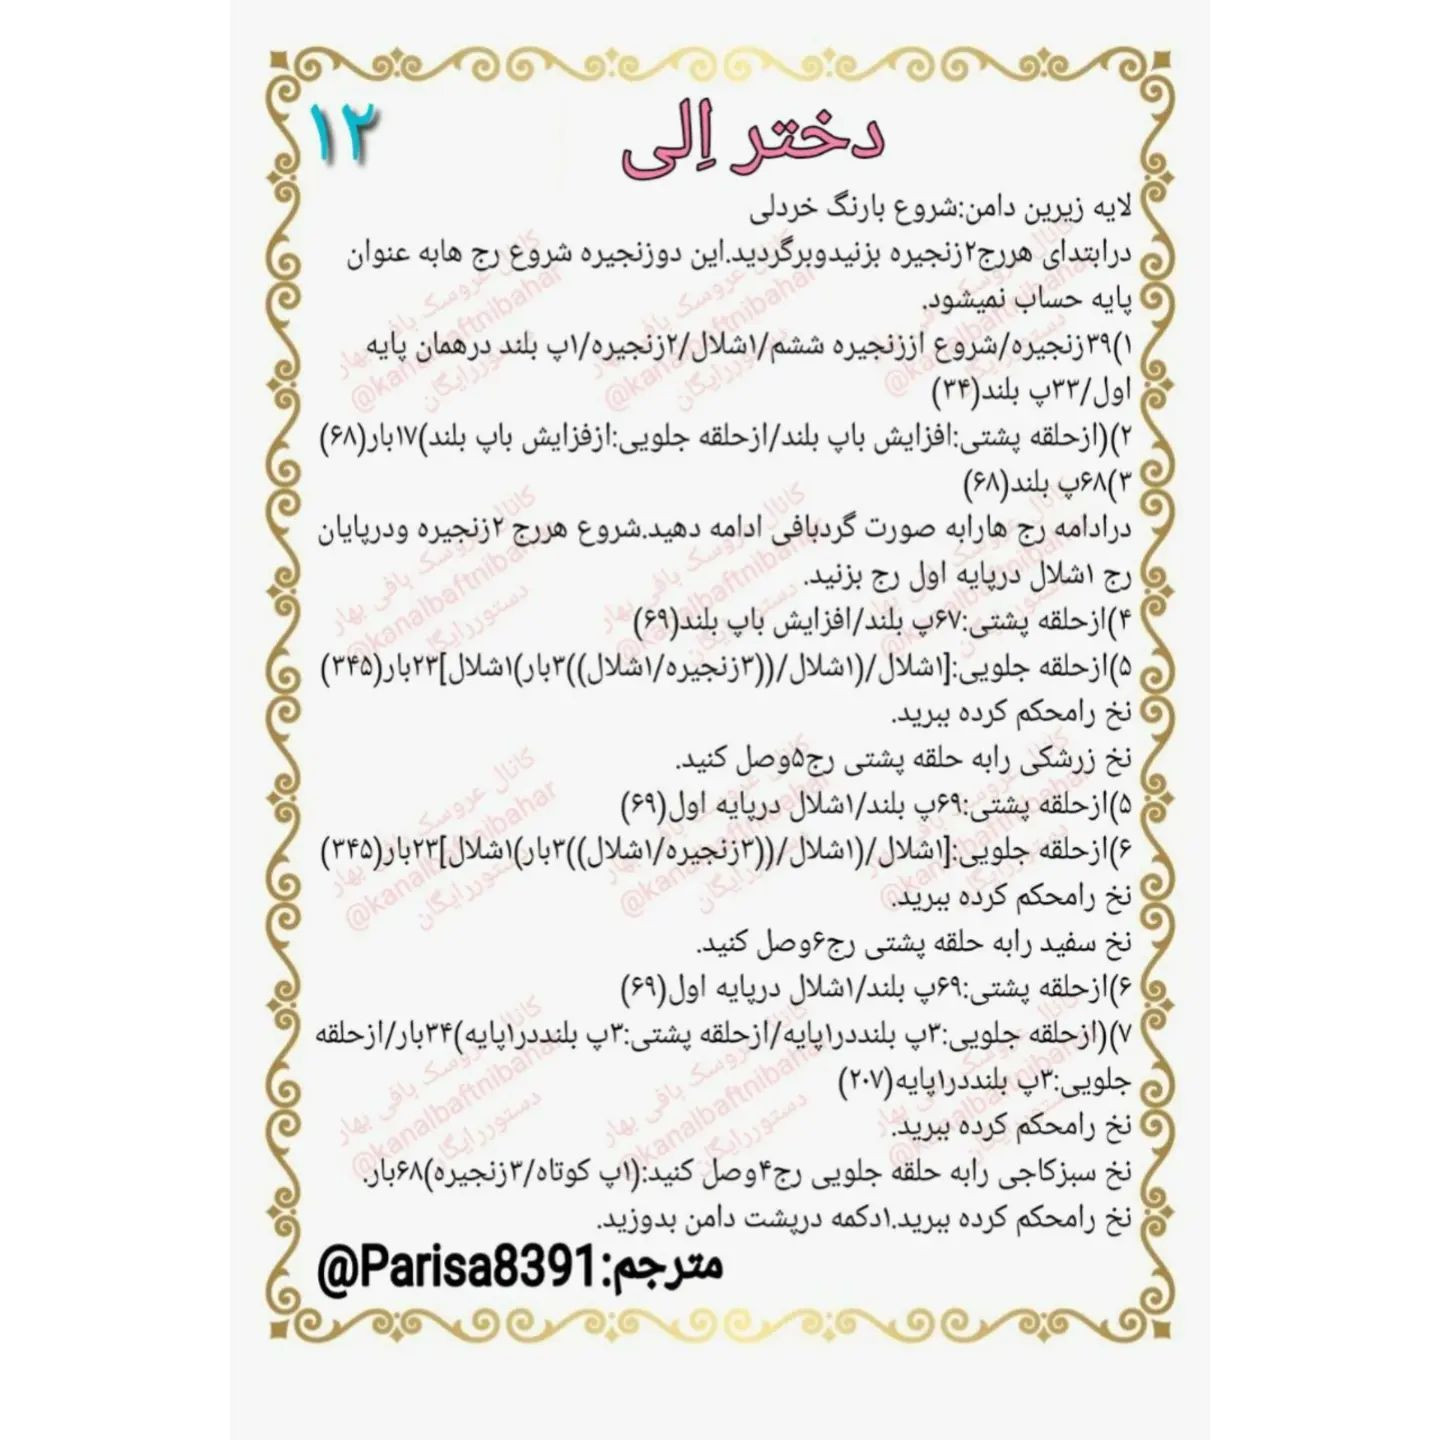 دختر اِلی
۱۲
لایه زیرین دامن:شروع بارنگ خردلی
درابتدای هررج۲زنجیره بزنیدوبرگردید.این دوزنجیره شروع رج هابه عنوان
پایه حساب نمیشود.
۱)۳۹زنجیره/شروع اززنجیره ششم/۱شلال/۲زنجیره/۱پ بلند درهمان پایه
اول/۳۳پ بلند(۳۴)
۲)(ازحلقه پشتی:افزایش باپ بلند/ازحلقه جلویی:ازفزایش باپ بلند)۱۷بار(۶۸)
۳)۶۸پ بلند(۶۸)
درادامه رج هارابه صورت گردبافی ادامه دهید.شروع هررج ۲زنجیره ودرپایان
رج ۱شلال درپایه اول رج بزنید.
۴)ازحلقه پشتی:۶۷پ بلند/افزایش باپ بلند(۶۹)
۵)ازحلقه جلویی:[۱شلال/(۱شلال/((۳زنجیره/۱شلال))۳بار)۱شلال]۲۳بار(۳۴۵)
نخ رامحکم کرده ببرید.
نخ زرشکی رابه حلقه پشتی رج۵وصل کنید.
۵)ازحلقه پشتی:۶۹پ بلند/۱شلال درپایه اول(۶۹)
۶)ازحلقه جلویی:[۱شلال/(۱شلال/((۳زنجیره/۱شلال))۳بار)۱شلال]۲۳بار(۳۴۵)
نخ رامحکم کرده ببرید.
نخ سفید رابه حلقه پشتی رج۶وصل کنید.
۶)ازحلقه پشتی:۶۹پ بلند/۱شلال درپایه اول(۶۹)
۷)(ازحلقه جلویی:۳پ بلنددر۱پایه/ازحلقه پشتی:۳پ بلنددر۱پایه)۳۴بار/ازحلقه
جلویی:۳پ بلنددر۱پایه(۲۰۷)
نخ رامحکم کرده ببرید.
نخ سبزکاجی رابه حلقه جلویی رج۴وصل کنید:(۱پ کوتاه/۳زنجیره)۶۸بار.
نخ رامحکم کرده ببرید.۱دکمه درپشت دامن بدوزید.
مترجم:Parisa8391@
کانال عروسک بافی بهار
@kanalbaftnibahar
دستوررایگان